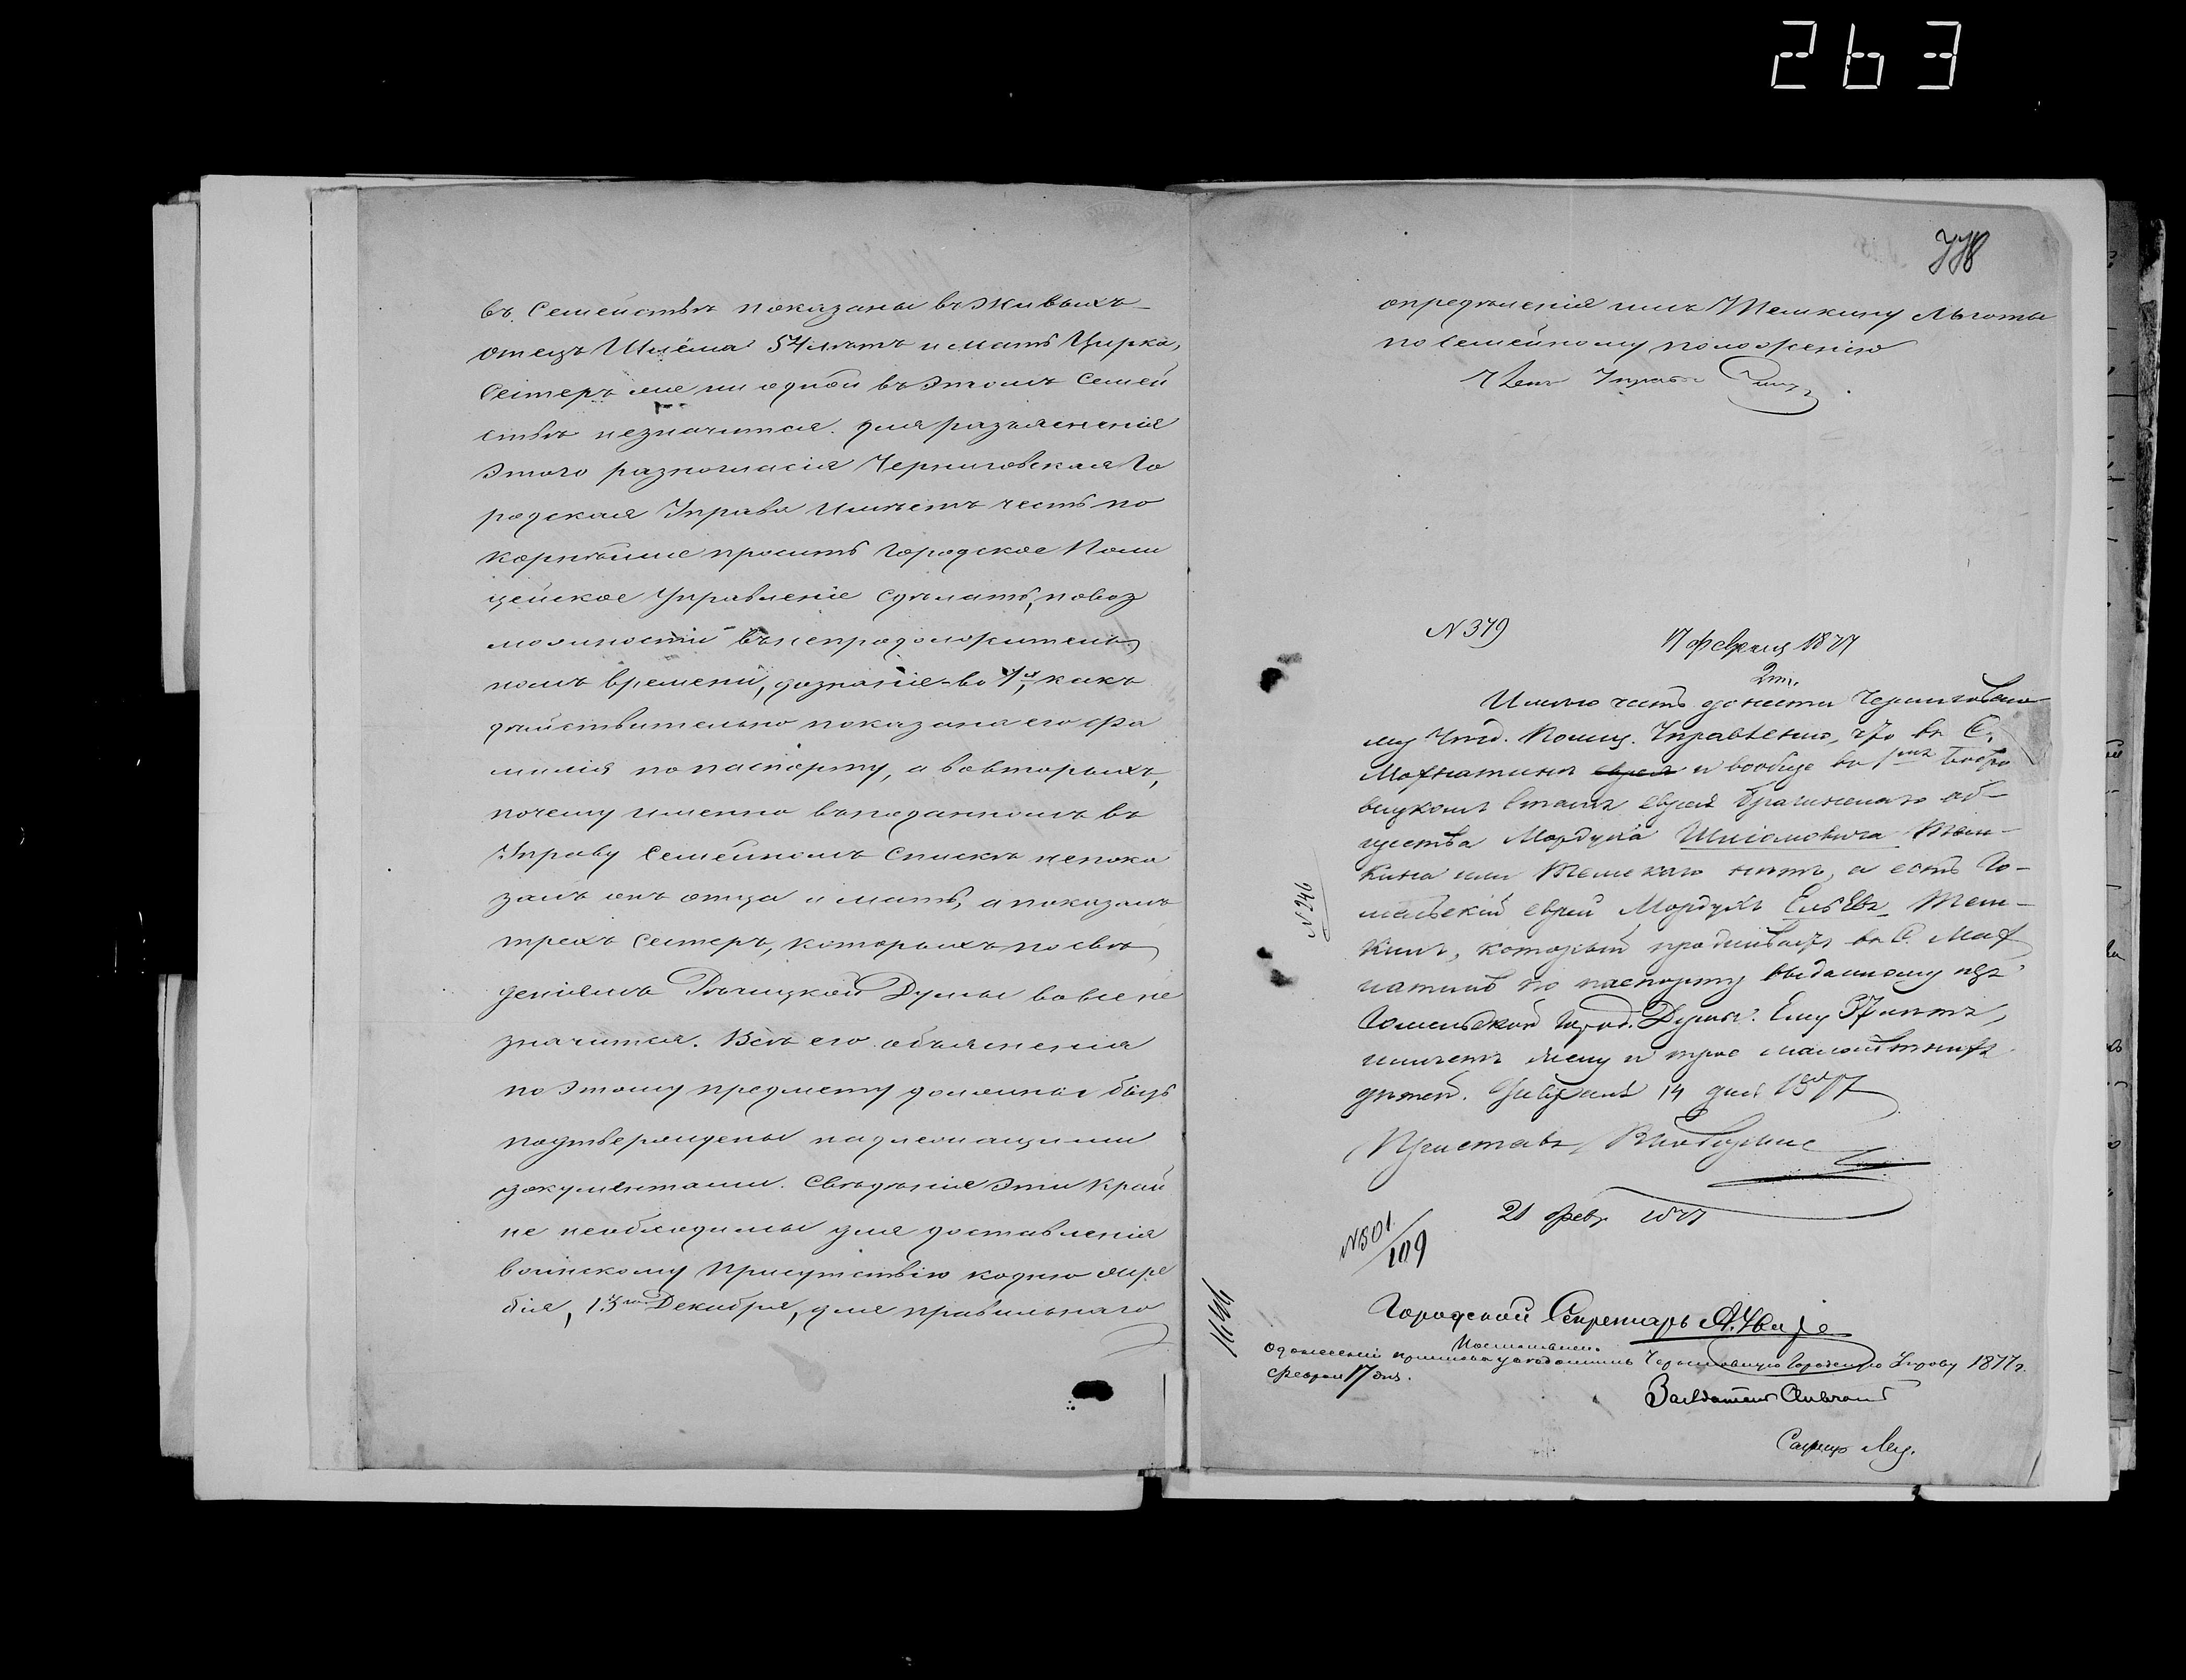 263
въ Семействѣ показаны въ живыхъ
отецъ Шлёма 54 лѣтъ и мать Цирка,
Сестеръ же ни одной въ этомъ Семей
ствѣ незначится. Для разъясненія
этого разногласія Черниговская Го
родская Управа имѣетъ честь по
корнѣйше просить Городское Поли
цейское Управленіе сдѣлать, повоз
можности въ непродолжитель
номъ времени, дознаніе во 1хъ, какъ
дѣйствительно показана его фа
милія по паспорту, а вовторыхъ,
почему именно въ поданномъ въ
Управу Семейномъ Спискѣ непока
залъ онъ отца и мать, а показалъ
трехъ Сестеръ, которыхъ по свѣ
деніямъ Рѣчицкой Думы вовсе не
значится. Всѣ его объясненія
по этому предмету должны быть
подтверждены надлежащими
документами. Свѣдѣнія эти край
не необходимы для доставленія
воинскому Присутствію ко дню жре
бія, 13го Декабря, для правильнаго
опредѣленія имъ Темкину льготы
по семейному положенію
Членъ Управы
N 379
17 февраля 1877
Имѣю честь донести Черниговско
му Полиц. Управленію, что въ С.
Махнатинѣ еврея и вообще во 1мъ
станѣ еврея Брагинскаго об-
щества Мордуха Шліомовича Тем-
кина или нѣтъ, а есть Го-
мельскій еврей Мордухъ Тем-
кинъ, который проживаетъ въ С. Мах
натинѣ по паспорту выданному изъ
Гомельской Город. Думы. Ему 37 лѣтъ,
имѣетъ жену и трое малолѣтнихъ
дѣтей. Февраля 14 дня 1877
Приставъ
N 246
21 февр 1877
N 501/109
Городской Секретарь
1877 г.
Февраля 17 дня.